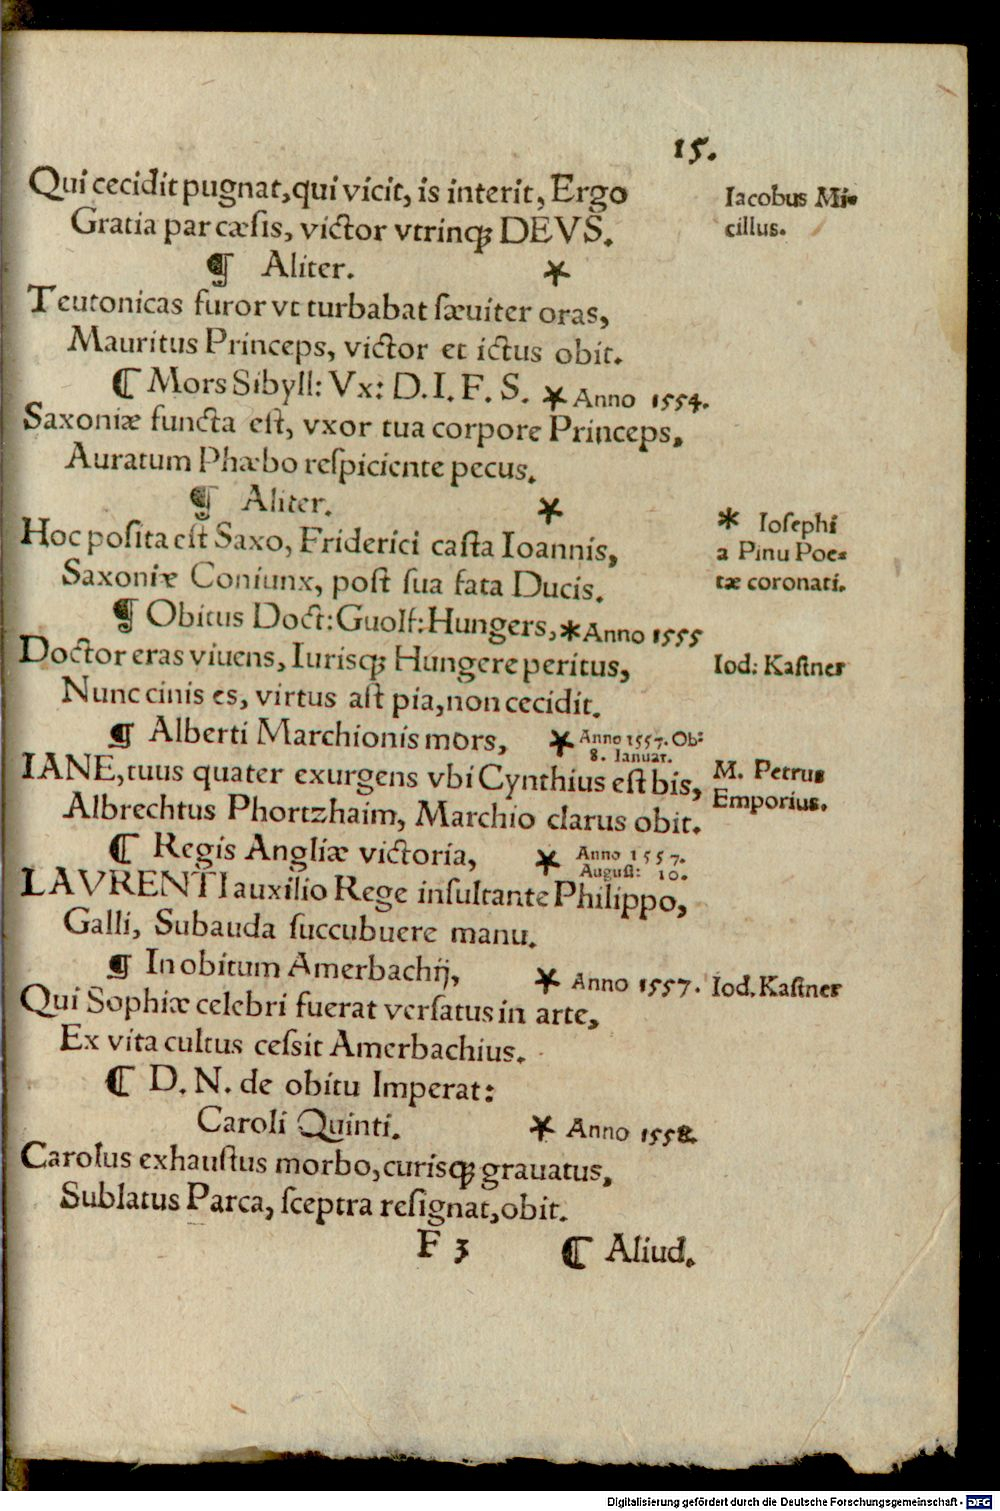 15.
Qui cecidit pugnat, qui vicit, is interit, Ergo
Iacobus Mi-
Gratia par cæsis, victor vtrinqꝫ DEVS.
cillus.
¶ Aliter. *
Teutonicas furor vt turbabat sæuiter oras,
Mauritus Princeps, victor et ictus obit.
¶ Mors Sibyll: Vx: D. I. F. S. * Anno 1554.
Saxoniæ functa est, vxor tua corpore Princeps,
Auratum Phæbo respiciente pecus.
¶ Aliter. *
* Iosephi
Hoc posita est Saxo, Friderici casta Ioannis,
a Pinu Poe-
Saxoniæ Coniunx, post sua fata Ducis.
tæ coronati.
¶ Obitus Doct: Guolf: Hungers, * Anno 1555
Doctor eras viuens, Iurisqꝫ Hungere peritus,
Iod: Kastner
Nunc cinis es, virtus ast pia, non cecidit.
¶ Alberti Marchionis mors, * Anno 1557. Ob:
8. Ianuar.
IANE, tuus quater exurgens vbi Cynthius est bis,
M. Petrus
Albrechtus Phortzhaim, Marchio clarus obit.
Emporius.
¶ Regis Angliæ victoria, * Anno 1557.
August: 10.
LAVRENTI auxilio Rege insultante Philippo,
Galli, Subauda succubuere manu.
¶ In obitum Amerbachij, * Anno 1557. Iod. Kastner
Qui Sophiæ celebri fuerat versatus in arte,
Ex vita cultus cessit Amerbachius.
¶ D. N. de obitu Imperat:
Caroli Quinti. * Anno 1558.
Carolus exhaustus morbo, curisqꝫ grauatus,
Sublatus Parca, sceptra resignat, obit.
F 3 ¶ Aliud.
Digitalisierung gefördert durch die Deutsche Forschungsgemeinschaft - DFG